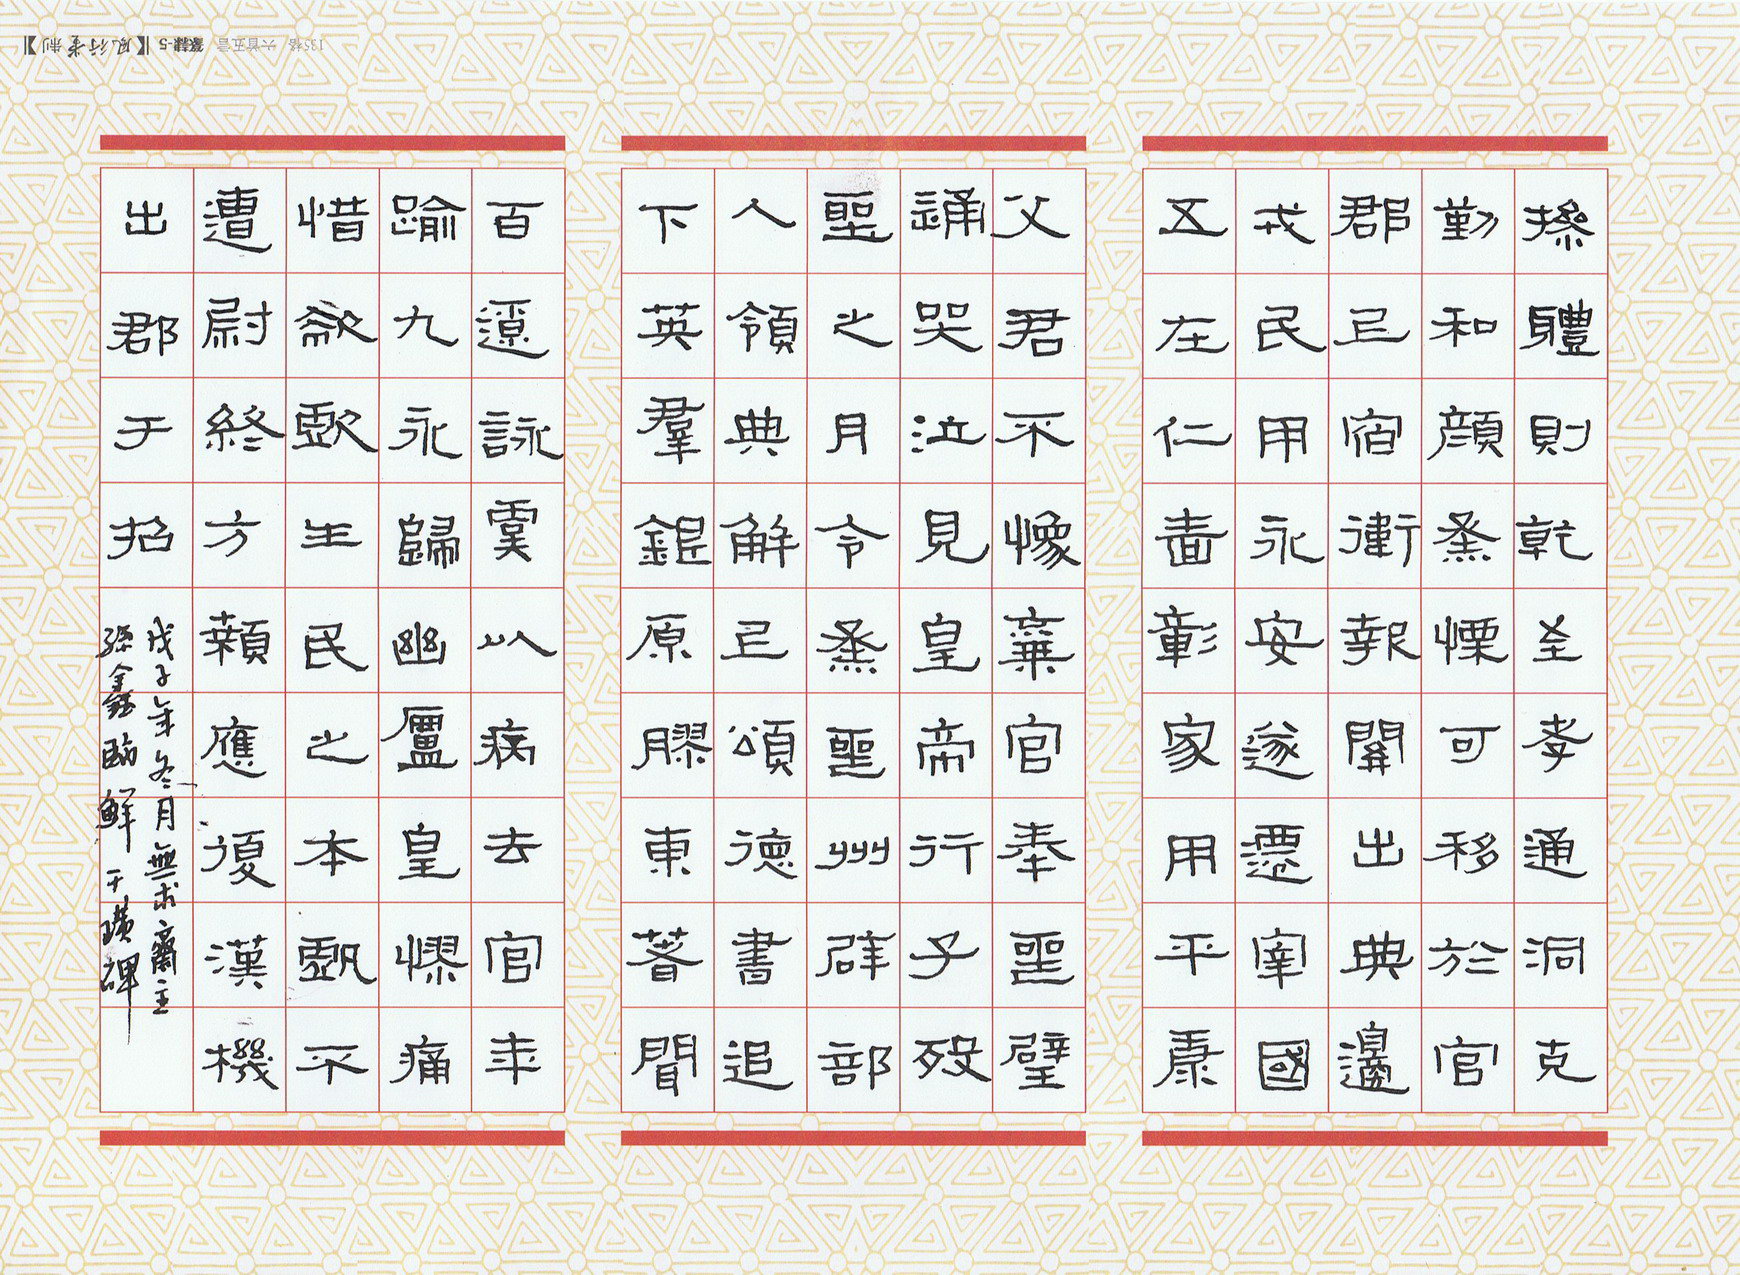 操體則乾至孝通洞克
勤和顏烝慄可移於官
郡㠯宿衛報關出典邊
戎民用永安遂遷宰國
五在仁啚彰家用平康
父君不像棄官奉噩璧
誦哭泣見皇帝行子殁
聖之月令烝噩州辟部
人領典解㠯頌德書追
下英羣鋃原膠東著聞
百遼詠虞以病去官年
踰九永歸幽廬皇懰痛
惜欷歔生民之本不
遭尉終方賴應復漢機
出郡于招
戊子年冬月無求齋主
孫鑫臨鮮于璜碑
135格 六首五言 篆隸-5 【風行堂制】